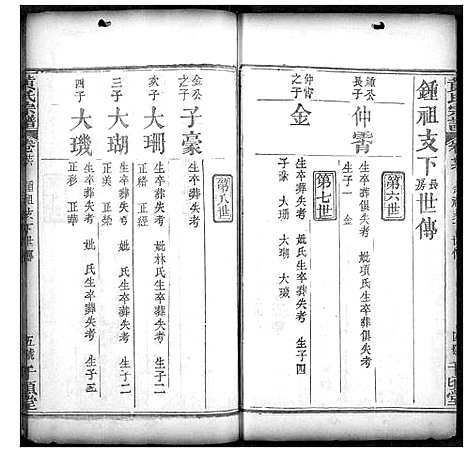 鍾祖支下長房世傳
第六世
鍾公長子
仲霄
生卒葬俱失考 妣項氏生卒葬俱失考
生子一 金
第七世
仲霄之子
金
生卒葬失考 妣 氏生卒葬失考 生子四
子豪 大珊 大瑚 大璣
第八世
金公之子
子豪
生卒葬失考
次子
大珊
生卒葬失考 妣林氏生卒葬失考 生子二
正榦 正經
三子
大瑚
生卒葬失考 妣 氏生卒葬失考 生子二
正美 正榮
四子
大璣
生卒葬失考 妣 氏生卒葬失考 生子二
正彩 正華
黃氏宗譜
鍾祖支下世傳
五號
千頃堂